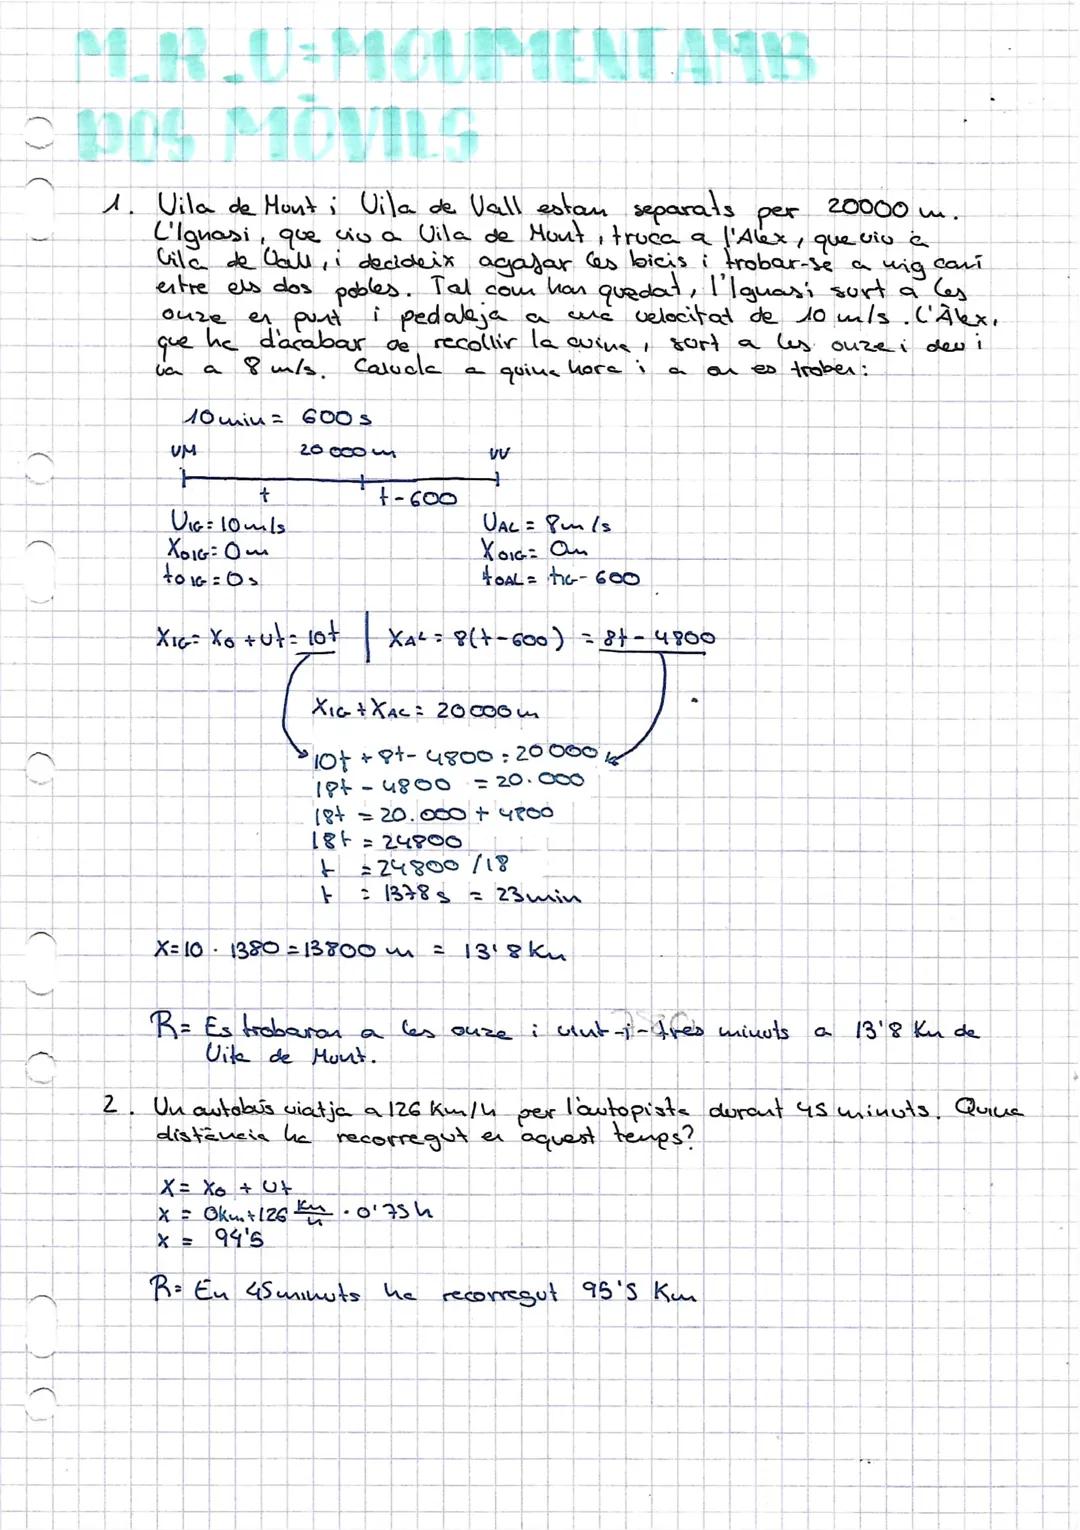 M.R.U: MOVIMENT AMB
DOS MÒVILS
1. Vila de Munt i Vila de Vall estan separats per 20000 m.
L'Ignasi, que viu a Vila de Munt, truca a l'Àlex, que viu a
Vila de Vall, i decideix agafar les bicis i trobar-se a mig camí
entre els dos pobles. Tal com han quedat, l'Ignasi surt a les
onze en punt i pedaleja a una velocitat de 10 m/s. L'Àlex,
que ha d'acabar de recollir la cuina, surt a les onze i deu i
va a 8 m/s. Calcula a quina hora i a on es troben:
10 min = 600 s
VM 20 000 m VV
t t-600
VIG = 10 m/s VAL = 8 m/s
X0IG = 0 m X0IG = 0m
t0IG = 0s t0AL = tIG - 600
XIG = X0 + vt = 10t | XAL = 8(t-600) = 8t - 4800
XIG + XAL = 20000 m
10t + 8t - 4800 = 20000
18t - 4800 = 20.000
18t = 20.000 + 4800
18t = 24800
t = 24800 / 18
t = 1378 s = 23 min
X = 10 · 1380 = 13800 m = 13'8 Km
R = Es trobaran a les onze i vint-i-tres minuts a 13'8 Km de
Vila de Munt.
2. Un autobús viatja a 126 Km/h per l'autopista durant 45 minuts. Quina
distància ha recorregut en aquest temps?
X = X0 + vt
X = 0km + 126 Km/h · 0'75 h
X = 94'5
R = En 45 minuts ha recorregut 95'5 Km